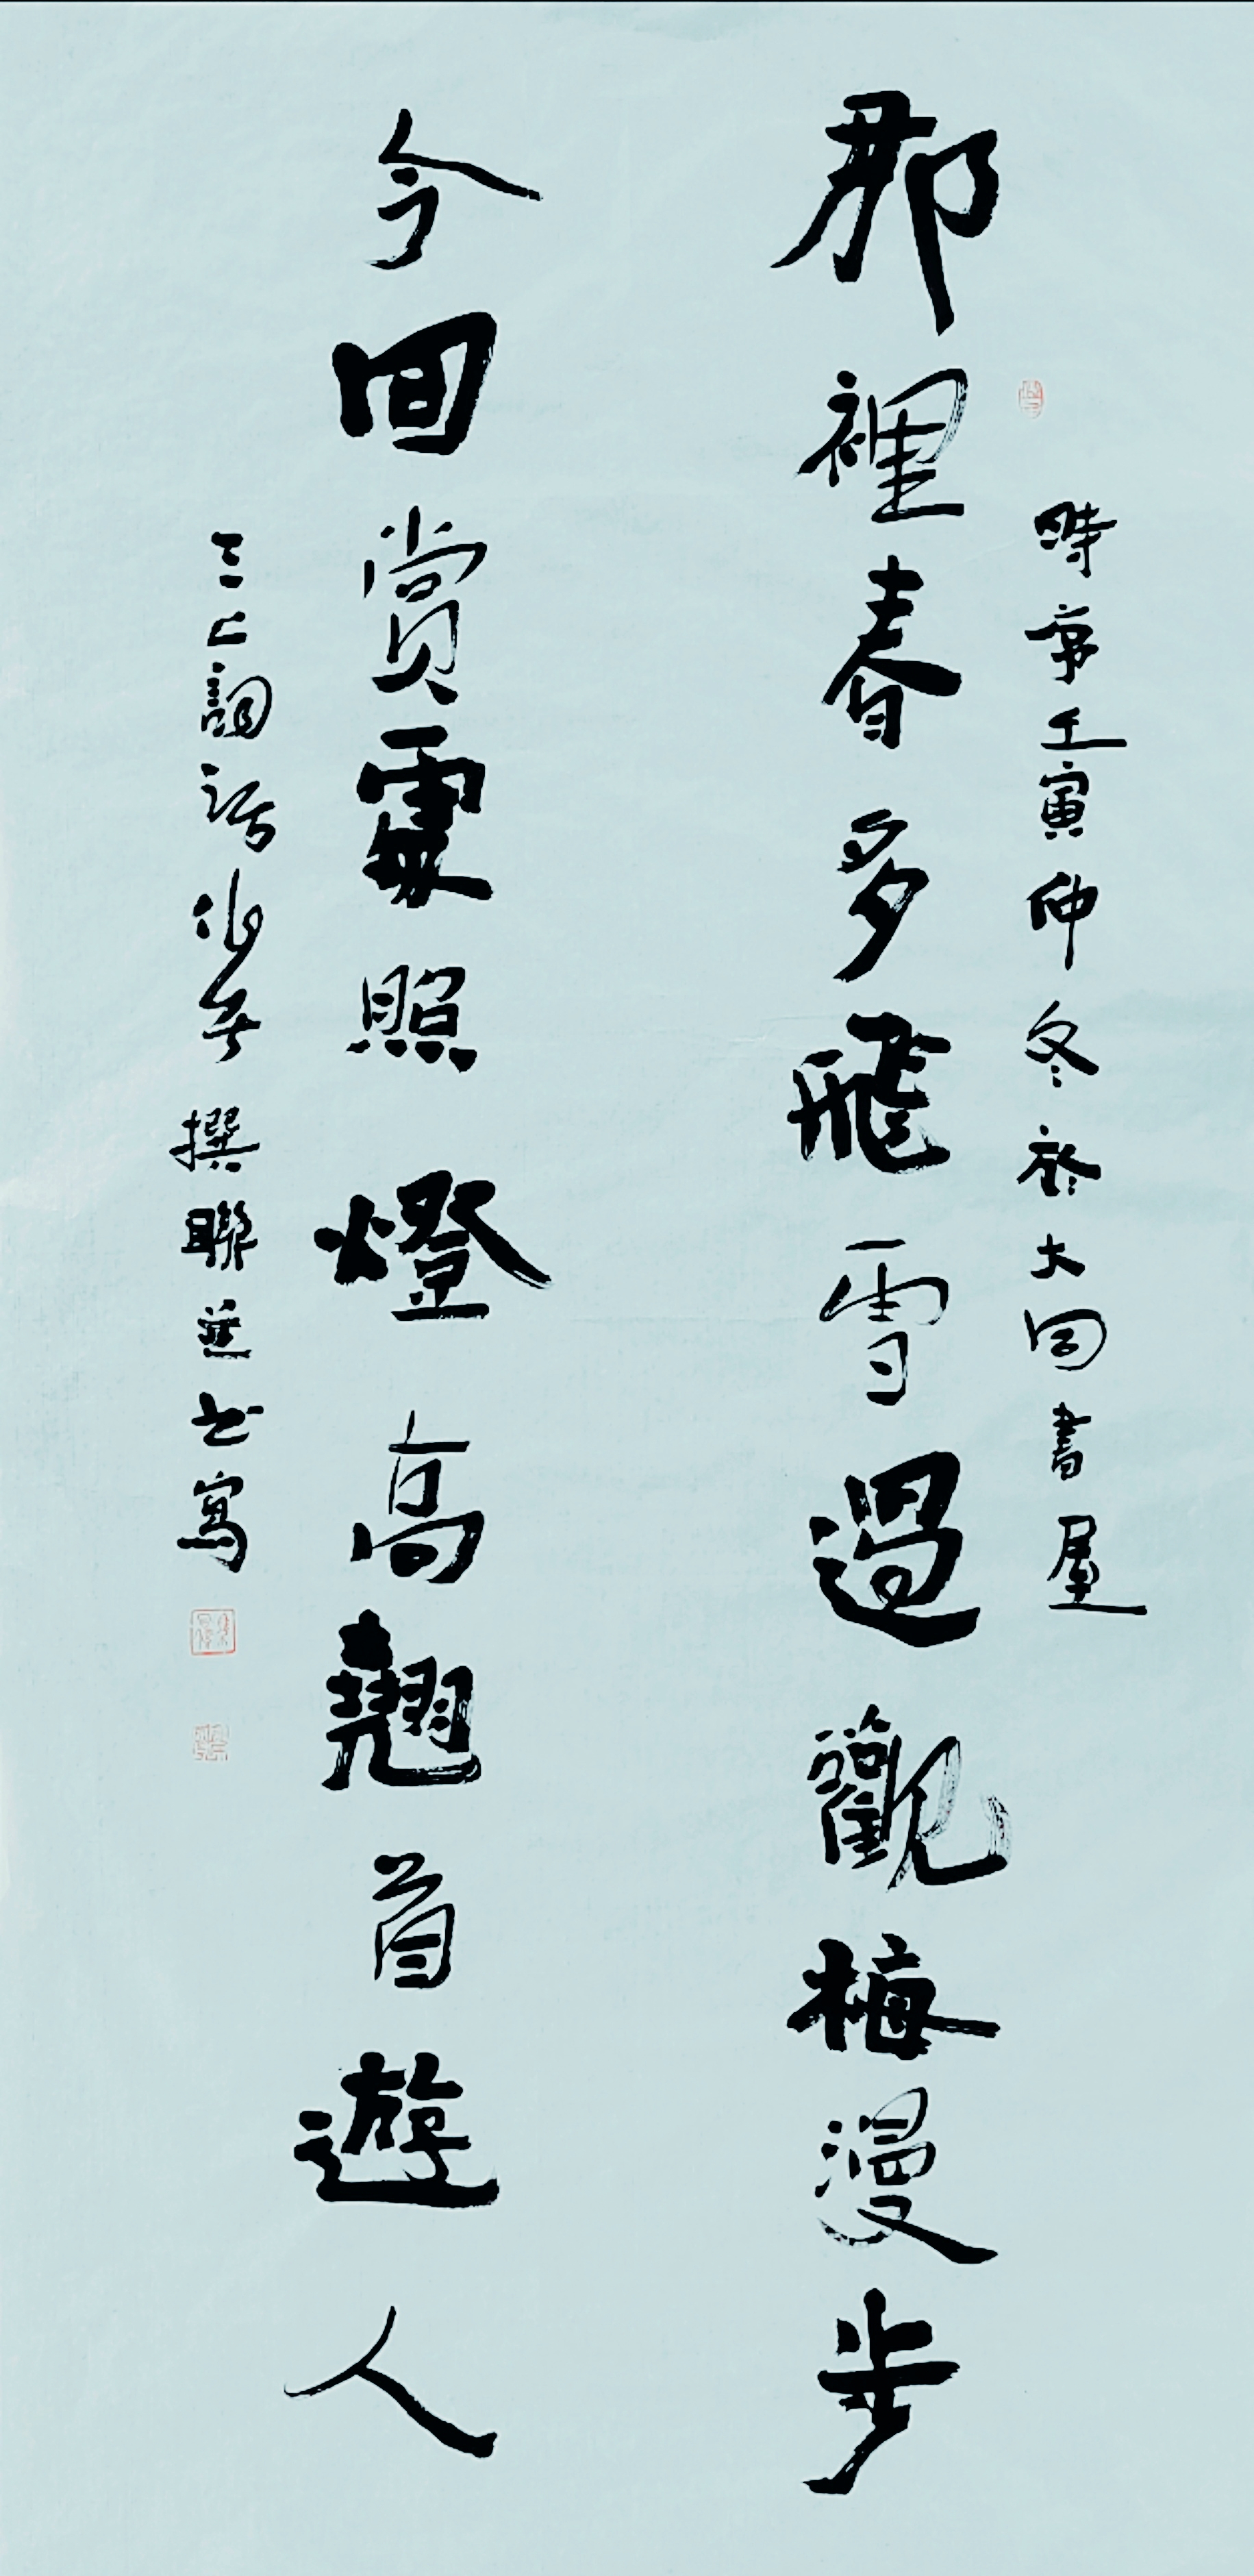 時序壬寅仲冬於大同書屋
那裡春多飛雪過觀梅漫步
今回賞照燈高翹首遊人
三詞話作者撰聯並书寫